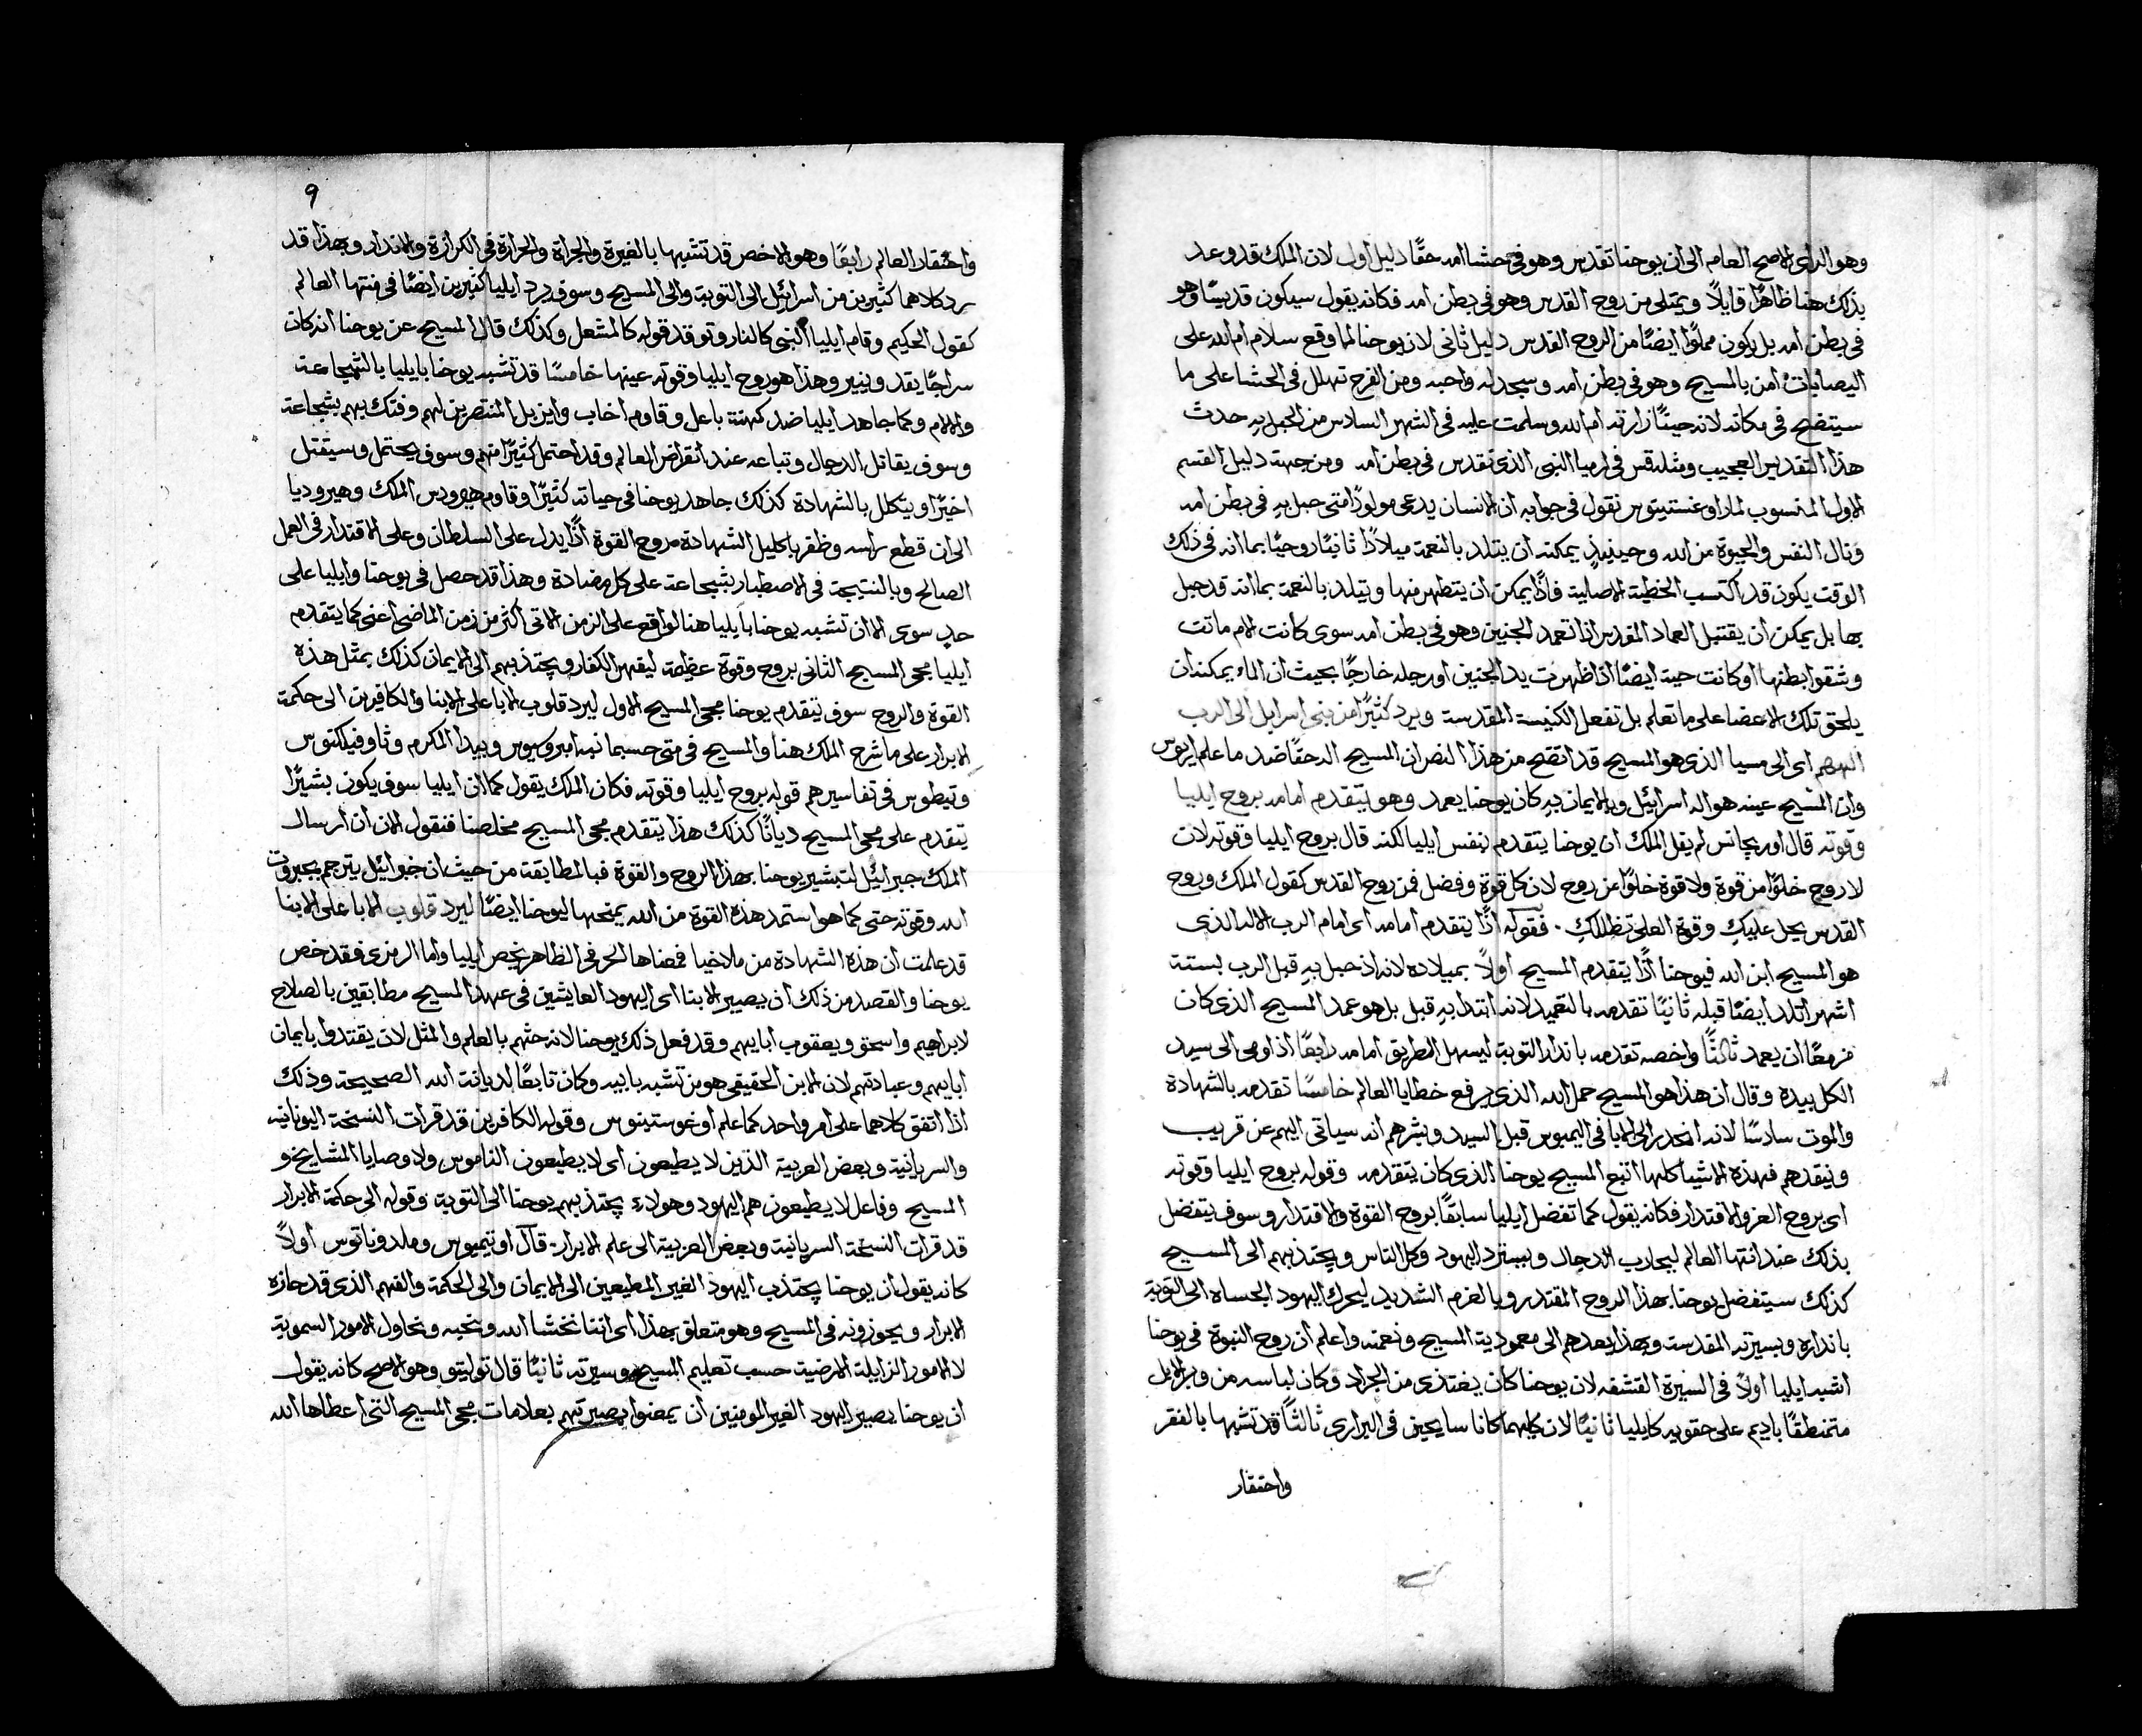 وهو الراى الاصح العام الى ان يوحنا تقدس وهو فى حشا امه حقًا دليل اول لان الملك قد وعد
بذلك هنا ظاهرًا قايلاً ويمتلى من روح القدس وهو فى بطن امه فكانه يقول سيكون قديسًا وهو
فى بطن امه بل يكون مملوًا ايضًا من الروح القدس دليل ثانى لان يوحنا لما وقع سلام ام الله على
اليصابات امن بالمسيح وهو فى بطن امه وسجد له واحبه ومن الفرح تهلل فى الحشا على ما
سيتضح فى مكانه لانه حينًا زارته ام الله وسلمت عليه فى الشهر السادس من الحبل به حدث
هذا التقديس العجيب ومثله قس فى ارميا النبى الذى تقدس فى بطن امه ومن جهة دليل القسم
الاول المنسوب لمار اوغستينوس نقول فى جوابه ان الانسان يدعى مولودًا متى حبل به فى بطن امه
ونال النفس والحيوة من الله وحينيذٍ يمكنه ان يتلد بالنعمة ميلادًا ثانيًا روحيًا بما انه فى ذلك
الوقت يكون قد اكتسب الخطية الاصلية فاذًا يمكن ان يتطهر منها ويتلد بالنعمة بما انه قد حبل
بها بل يمكن ان يقتبل العماد المقدس اذا تعمد الجنين وهو فى بطن امه سوى كانت الام ماتت
وشقوا بطنها او كانت حية ايضًا اذا ظهرت يد الجنين او رجله خارجًا بحيث ان الماء يمكنه ان
يلحق تلك الاعضا على ما تعلم بل تفعل الكنيسة المقدسة ويرد كثيرًا من بنى اسرايل الى الرب
الههم اى الى مسيا الذى هو المسيح قد اتضح من هذا النص ان المسيح اله حقًا ضد ما علم اريوس
وان المسيح عينه هو اله اسرائيل وبالايمان به كان يوحنا يعمد وهو يتقدم امامه بروح ايليا
وقوته قال اوريجانس لم يقل الملك ان يوحنا يتقدم بنفس ايليا لكنه قال بروح ايليا وقوته لان
لا روح خلوًا من قوة ولا قوة خلوًا عن روح لان كل قوة وفضل فمن روح القدس كقول الملك وروح
القدس يحل عليكِ وقوة العلى تظللكِ . فقوله اذًا يتقدم امامه اى امام الرب الاله الذى
هو المسيح ابن الله فيوحنا اذًا يتقدم المسيح اولاً بميلاده لانه اذ حبل به قبل الرب بستة
اشهر اتلد ايضًا قبله ثانيًا تقدمه بالتعميد لانه ابتدا به قبل بل هو عمد المسيح الذى كان
مزمعًا ان يعمد ثالثًا واخصه تقدمه بانذار التوبة ليسهل الطريق امامه رابعًا اذ اومى الى سيد
الكل بيده وقال ان هذا هو المسيح حمل الله الذى يرفع خطايا العالم خامسًا تقدمه بالشهادة
والموت سادسًا لانه انحدر الى الابا فى اليمبوس قبل السيد وبشرهم انه سياتى اليهم عن قريب
وينقدهم فهذه الاشيا كلها اتبع المسيح يوحنا الذى كان يتقدمه وقوله بروح ايليا وقوته
اى بروح العز والاقتدار فكانه يقول كما تفضل ايليا سابقًا بروح القوة والاقتدار وسوف يتفضل
بذلك عند انتها العالم ليحارب الدجال ويسترد اليهود وكل الناس ويجتذبهم الى المسيح
كذلك سيتفضل يوحنا بهذا الروح المقتدر وبالعزم الشديد ليحرك اليهود الجساه الى التوبة
بانذاره وبسيرته المقدسة وبهذا يعدهم الى معمودية المسيح ونعمته واعلم ان روح النبوة فى يوحنا
اشبه ايليا اولاً فى السيرة القشفه لان يوحنا كان يغتذى من الجراد وكان لباسه من وبر الابل
متمنطقًا باديم على حقويه كايليا ثانيًا لان كليهما كانا سايحين فى البرارى ثالثًا قد تشبها بالفقر
واحتقار
٩
واحتقار العالم رابعًا وهو الاخص قد تشبها بالغيرة والجراة والحرارة فى الكرازة والانذار وبهذا قد
رد كلاهما كثيرين من اسرائيل الى التوبة والى المسيح وسوف يرد ايليا كثيرين ايضًا فى منتها العالم
كقول الحكيم وقام ايليا النبى كالنار وتوقد قوله كالمشعل وكذلك قال المسيح عن يوحنا انه كان
سراجًا يقد وينير وهذا هو روح ايليا وقوته عينها خامسًا قد تشبه يوحنا بايليا بالشجاعة
والالام وكما جاهد ايليا ضد كهنة باعل وقاوم اخاب وايزبل المنتصرين لهم وفتك بهم بشجاعة
وسوف يقاتل الدجال وتباعه عند انقراض العالم وقد احتمل كثيرًا منهم وسوف يحتمل وسيقتل
اخيرًا ويتكلل بالشهادة كذلك جاهد يوحنا فى حياته كثيرًا وقاوم هيرودس الملك وهيروديا
الى ان قطع راسه وظفر باكليل الشهادة فروح القوة اذًا يدل على السلطان وعلى الاقتدار فى العمل
الصالح وبالنتيجة فى الاصطبار بشجاعة على كل مضادة وهذا قد حصل فى يوحنا وايليا على
حدٍ سوى الا ان تشبه يوحنا بايليا هنا لواقع على الزمن الاتى اكثر من زمن الماضى اعنى كما يتقدم
ايليا مجى المسيح الثانى بروح وقوة عظيمة ليقهر الكفار ويجتذبهم الى الايمان كذلك بمثل هذه
القوة والروح سوف يتقدم يوحنا مجى المسيح الاول ليرد قلوب الابا على الابنا والكافرين الى حكمة
الابرار على ما شرح الملك هنا والمسيح فى متى حسبما نبه امبروسيوس وبيدا المكرم وثاوفيلكتوس
وتيطوس فى تفاسيرهم قوله بروح ايليا وقوته فكان الملك يقول كما ان ايليا سوف يكون بشيرًا
يتقدم على مجى المسيح ديانًا كذلك هذا يتقدم مجى المسيح مخلصنا فنقول الان ان ارسال
الملك جبرائيل لتبشير يوحنا بهذا الروح والقوة فبالمطابقة من حيث ان جبرائيل يترجم بجبروت
الله وقوته حتى كما هو استمد هذه القوة من الله يمنحها ليوحنا ايضًا ليرد قلوب الابا على الابنا
قد علمت ان هذه الشهادة من ملاخيا فمعناها الحرفى الظاهر يخص ايليا واما الرمزى فقد خص
يوحنا والقصد من ذلك ان يصير الابنا اى اليهود العايشين فى عهد المسيح مطابقين بالصلاح
لابراهيم واسحق ويعقوب ابايهم وقد فعل ذلك يوحنا لانه حثهم بالعلم والمثل لان يقتدوا بايمان
ابايهم وعبادتهم لان الابن الحقيقى هو من تشبه بابيه وكان تابعًا لديانة الله الصحيحة وذلك
اذا اتفق كلاهما على امر واحد كما علم اوغوستينوس وقوله الكافرين قد قرات النسخة اليونانية
والسريانية وبعض العربية الذين لا يطيعون اى لا يطيعون الناموس ولا وصايا المشايخ و
المسيح وفاعل لا يطيعون هم اليهود وهولاء يجتذبهم يوحنا الى التوبة وقوله الى حكمة الابرار
قد قرات النسخة السريانية وبعض العربية الى علم الابرار . قال اوتيميوس وملدوناتوس اولاً
كانه يقول ان يوحنا يجتذب اليهود الغير المطيعين الى الايمان والى الحكمة والفهم الذى قد حازه
الابرار ويحوزونه فى المسيح وهو متعلق بهذا اى اننا نخشا الله ونحبه ونحاول الامور السموية
لا الامور الزايلة الارضية حسب تعليم المسيح وسيرته ثانيًا قال توليتو وهو الاصح كانه يقول
ان يوحنا يصير اليهود الغير المومنين ان يمعنوا بصيرتهم بعلامات مجى المسيح التى اعطاها الله